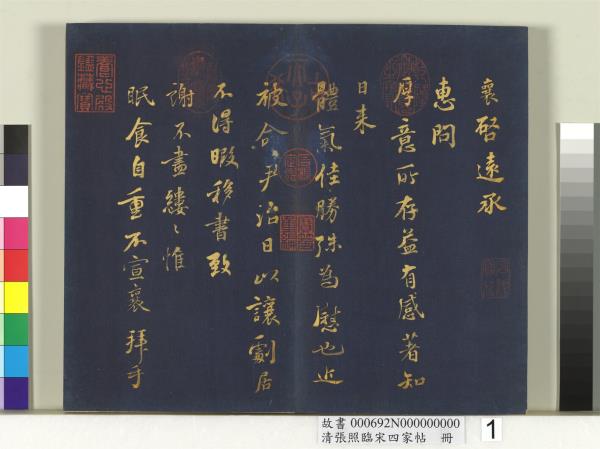 襄啓遠承
惠問
厚意所存益有感著知
日来
體氣佳勝殊為慰也近
被命尹洛日以讓劇居
不得暇移書致
謝不盡縷々惟
眠食自重不宣襄 拜手
故書 000692N000000000
清張照臨宋四家帖 冊
1